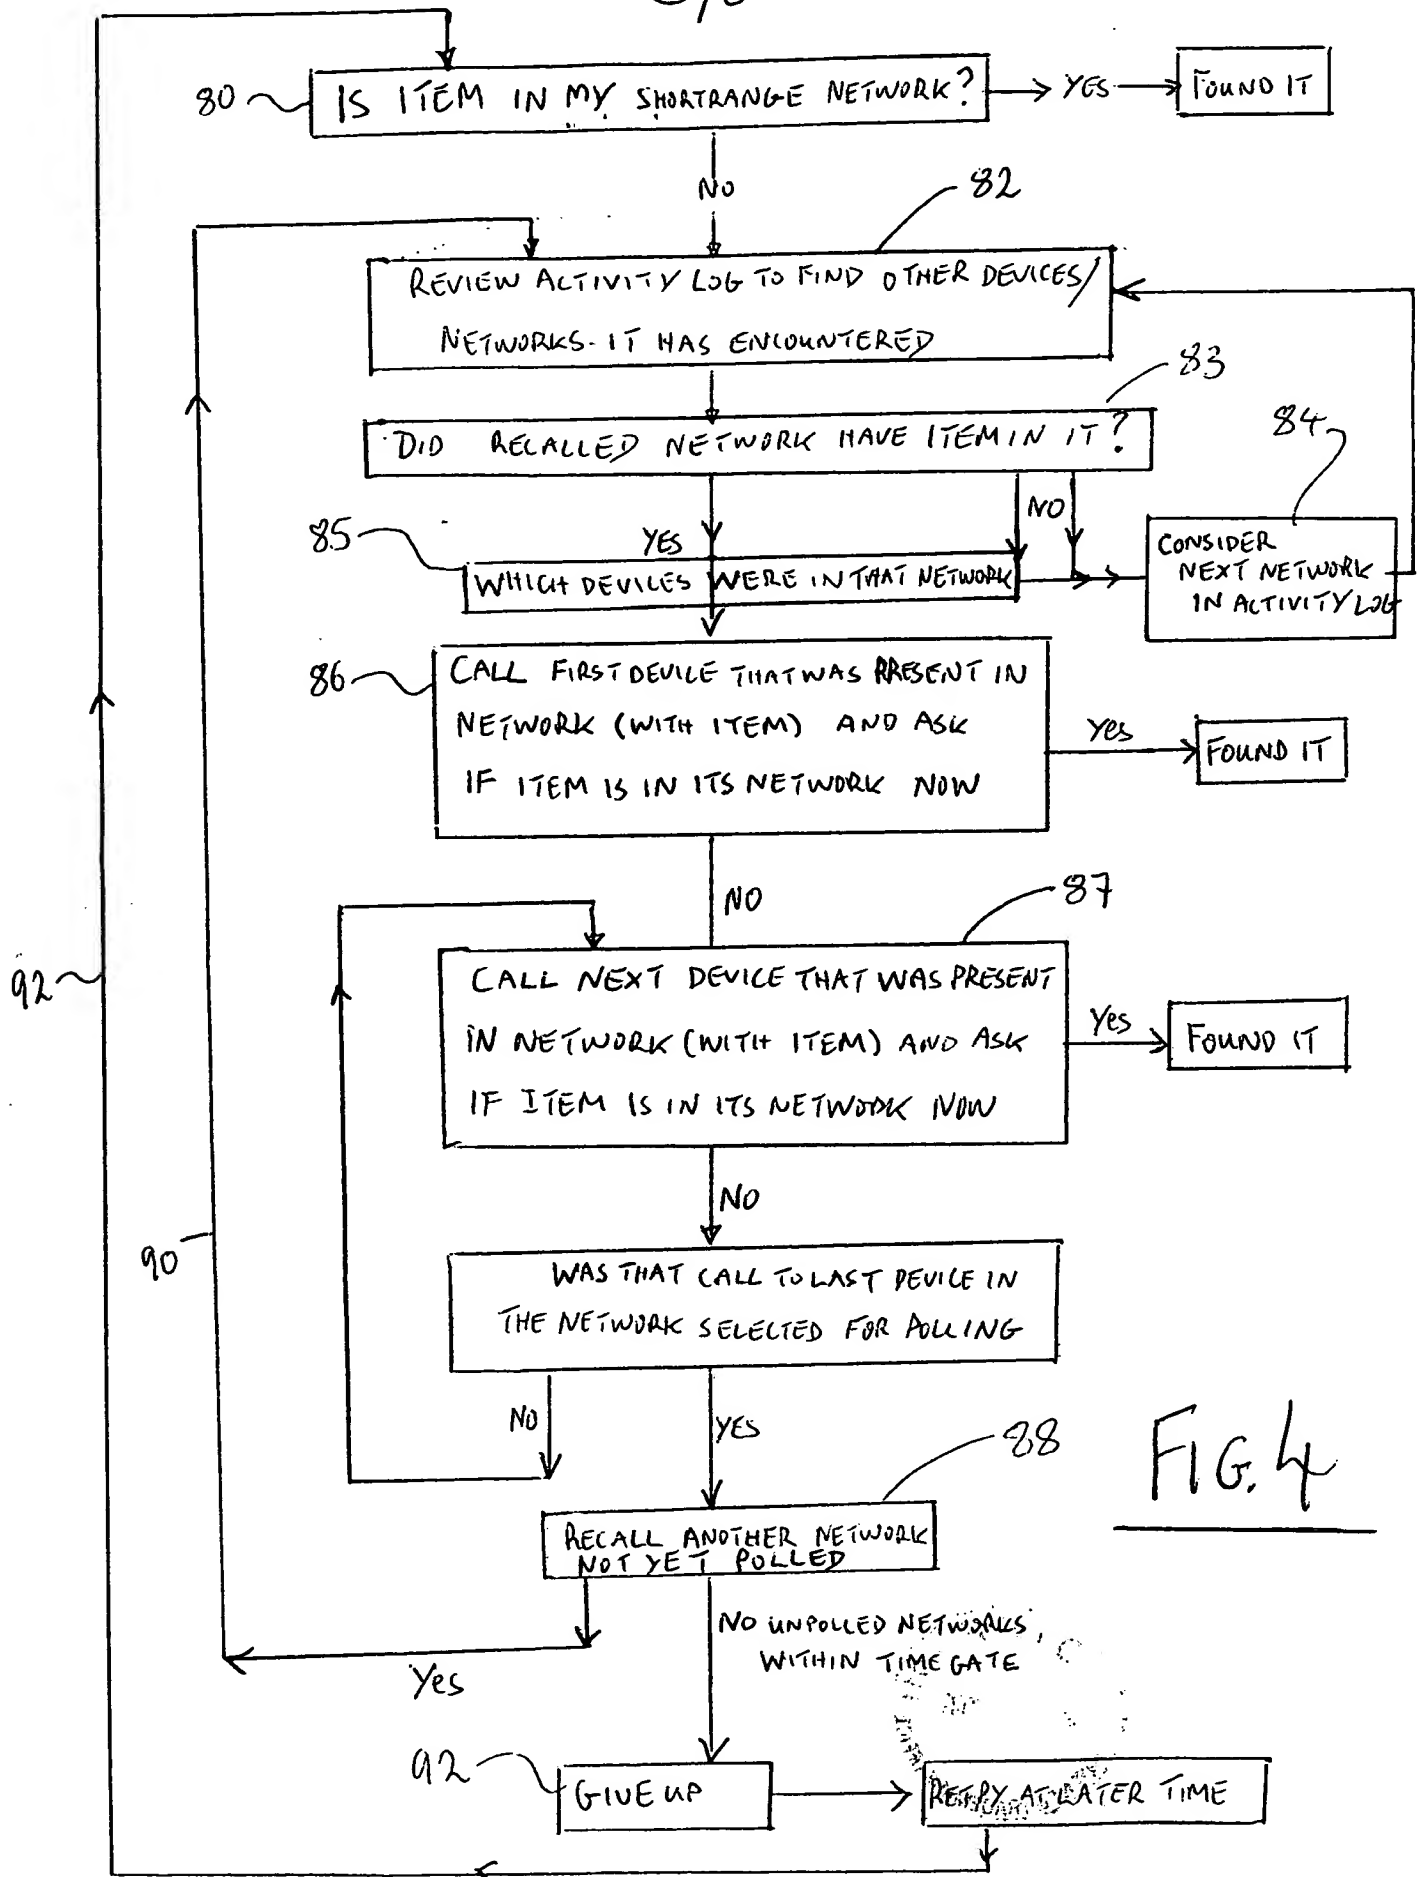 80
IS ITEM IN MY SHORTRANGE NETWORK?
YES
FOUND IT
NO
82
REVIEW ACTIVITY LOG TO FIND OTHER DEVICES/
NETWORKS. IT HAS ENCOUNTERED
83
DID RECALLED NETWORK HAVE ITEM IN IT?
84
NO
85
YES
WHICH DEVICES WERE IN THAT NETWORK
CONSIDER
NEXT NETWORK
IN ACTIVITY LOG
86
CALL FIRST DEVICE THAT WAS PRESENT IN
NETWORK (WITH ITEM) AND ASK
IF ITEM IS IN ITS NETWORK NOW
Yes
FOUND IT
NO
87
CALL NEXT DEVICE THAT WAS PRESENT
IN NETWORK (WITH ITEM) AND ASK
IF ITEM IS IN ITS NETWORK NOW
Yes
FOUND IT
92
NO
90
WAS THAT CALL TO LAST DEVICE IN
THE NETWORK SELECTED FOR POLLING
NO
YES
88
FIG. 4
RECALL ANOTHER NETWORK
NOT YET POLLED
NO UNPOLLED NETWORKS,
WITHIN TIME GATE
Yes
92
GIVE UP
RETRY AT LATER TIME